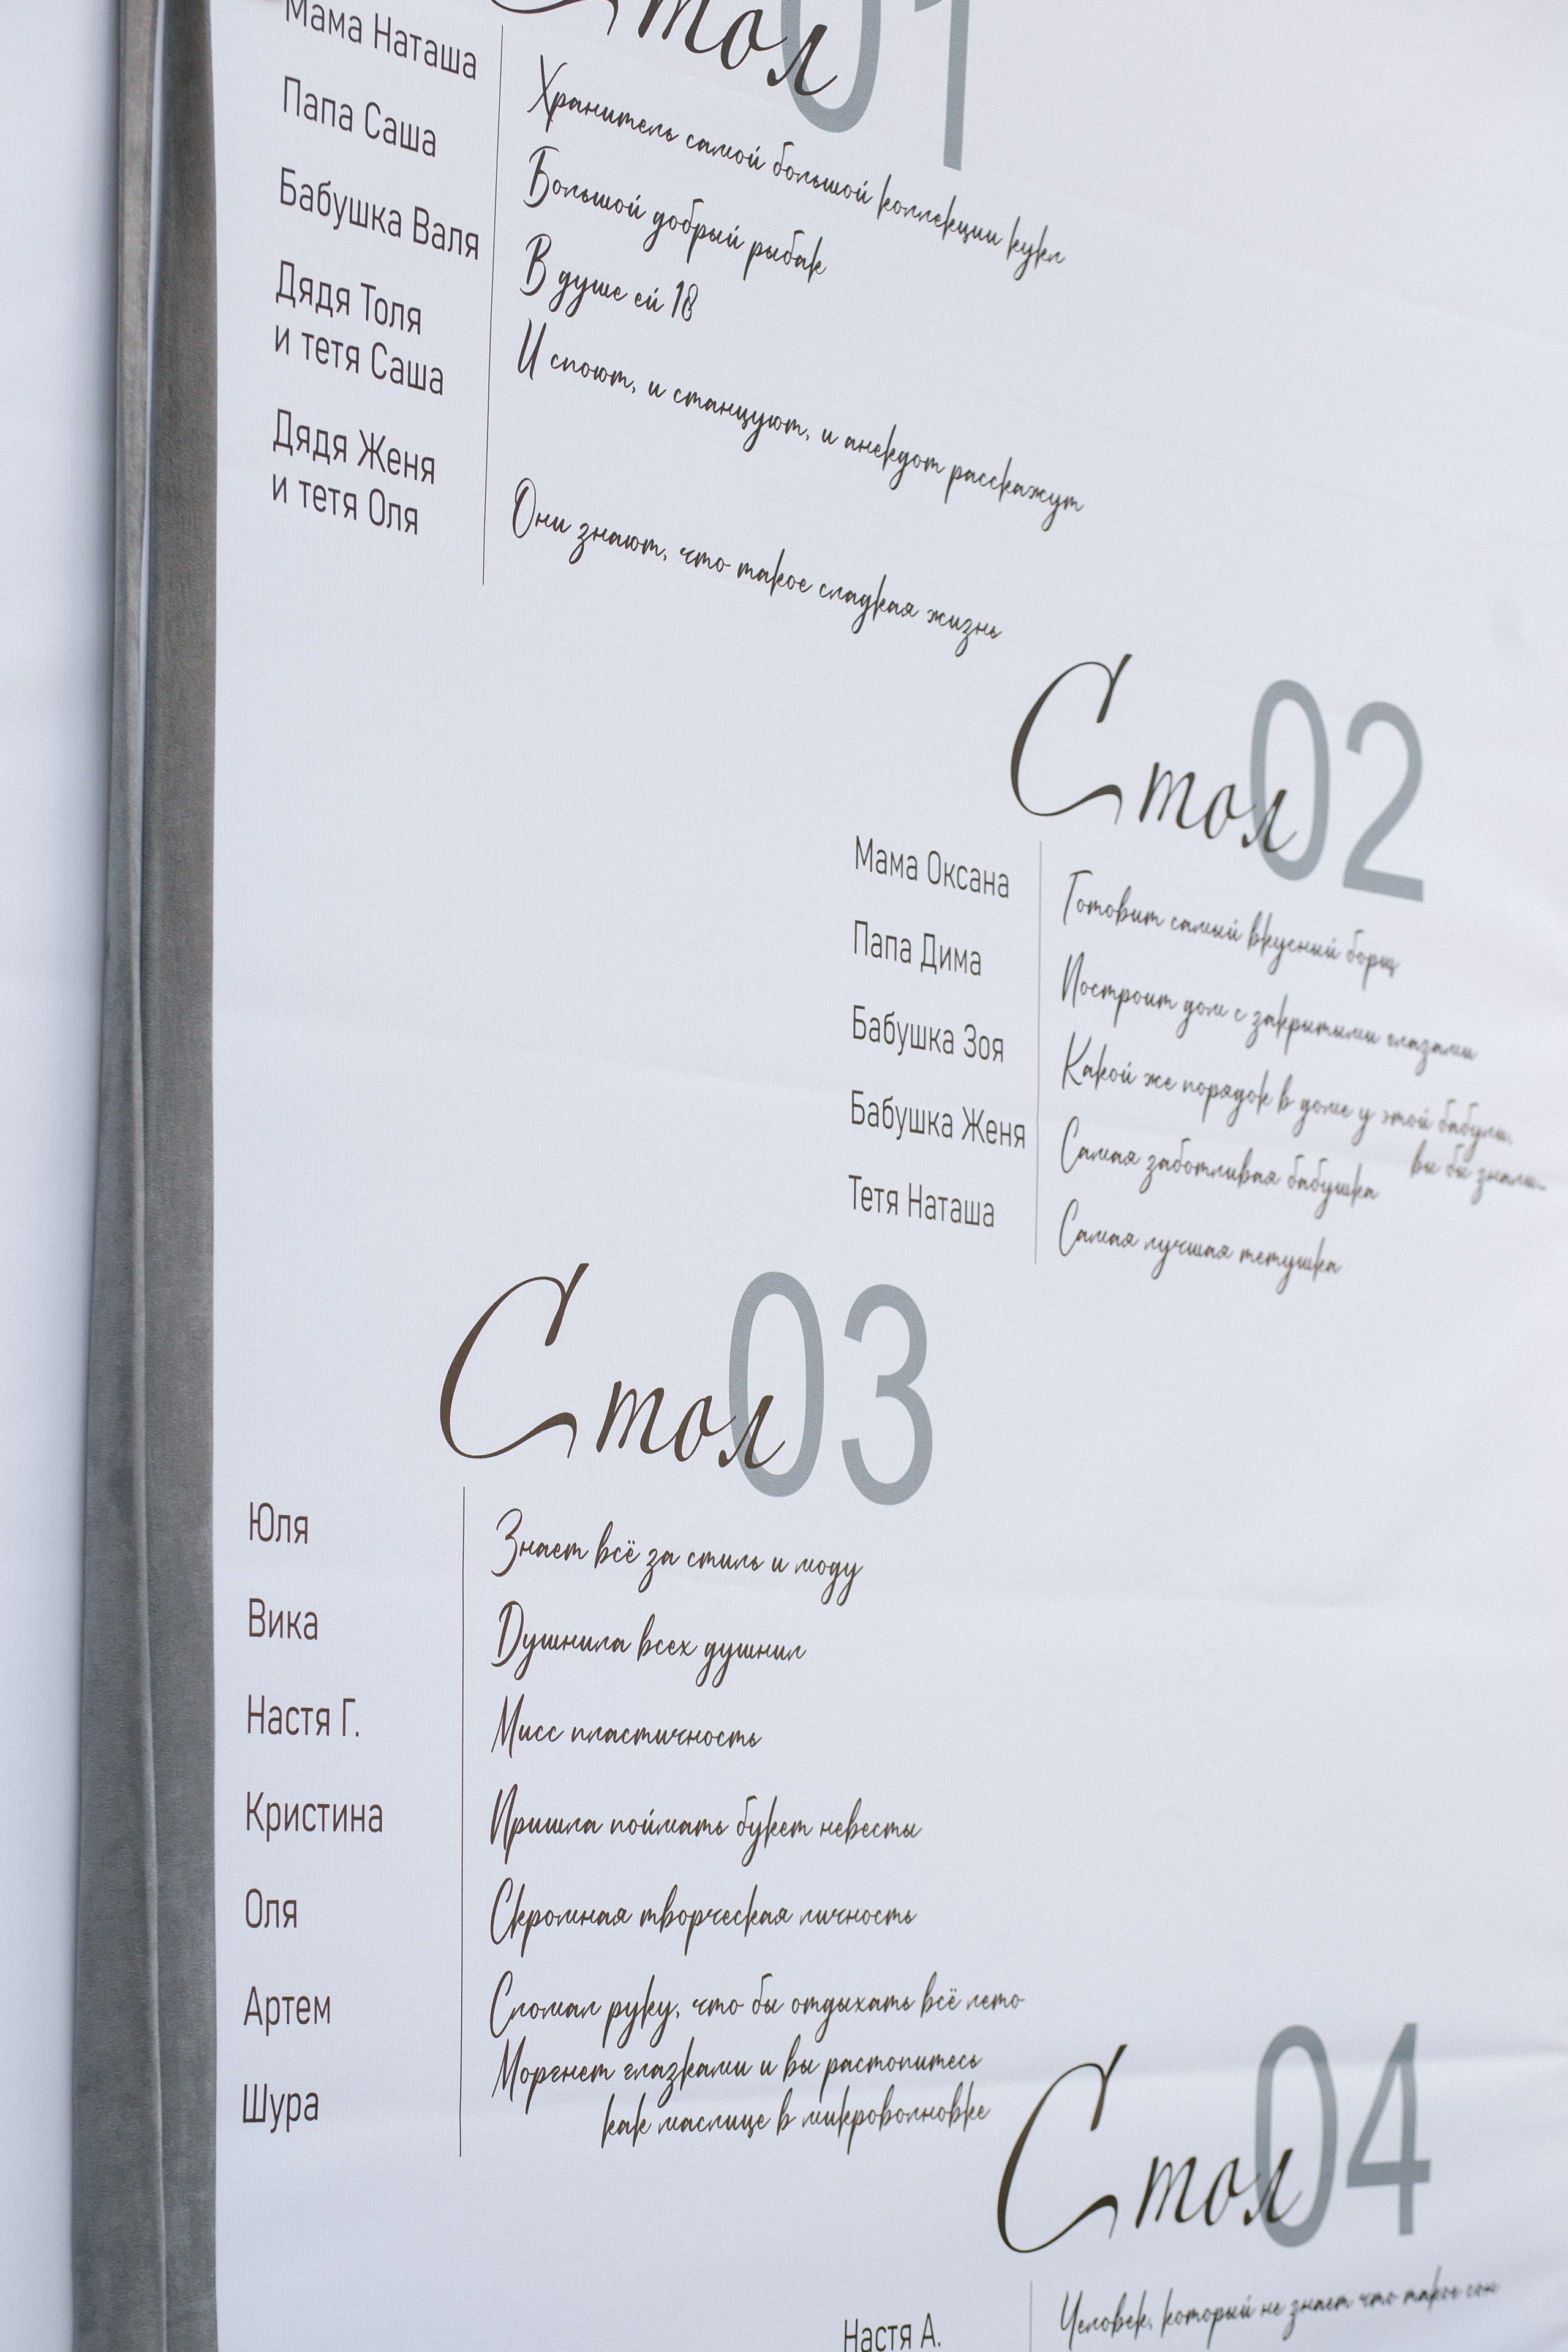 Стол 01
Мама Наташа
Хранитель самой большой коллекции кукл
Папа Саша
Большой добрый рыбак
Бабушка Валя
В душе ей 18
Дядя Толя
и тетя Саша
И споют, и станцуют, и анекдот расскажут
Дядя Женя
и тетя Оля
Они знают, что такое сладкая жизнь
Стол 02
Мама Оксана
Готовит самый вкусный борщ
Папа Дима
Построит дом с закрытыми глазами
Бабушка Зоя
Какой же порядок в доме у этой бабули,
вы бы знали...
Бабушка Женя
Самая заботливая бабушка
Тетя Наташа
Самая лучшая тетушка
Стол 03
Юля
Знает всё за стиль и моду
Вика
Душнила всех душнил
Настя Г.
Мисс пластичность
Кристина
Пришла поймать букет невесты
Оля
Скромная творческая личность
Артем
Сломал руку, что бы отдыхать всё лето
Шура
Моргнет глазками и вы растопитесь
как маслице в микроволновке
Стол 04
Настя А.
Человек, который не знает что такое сон